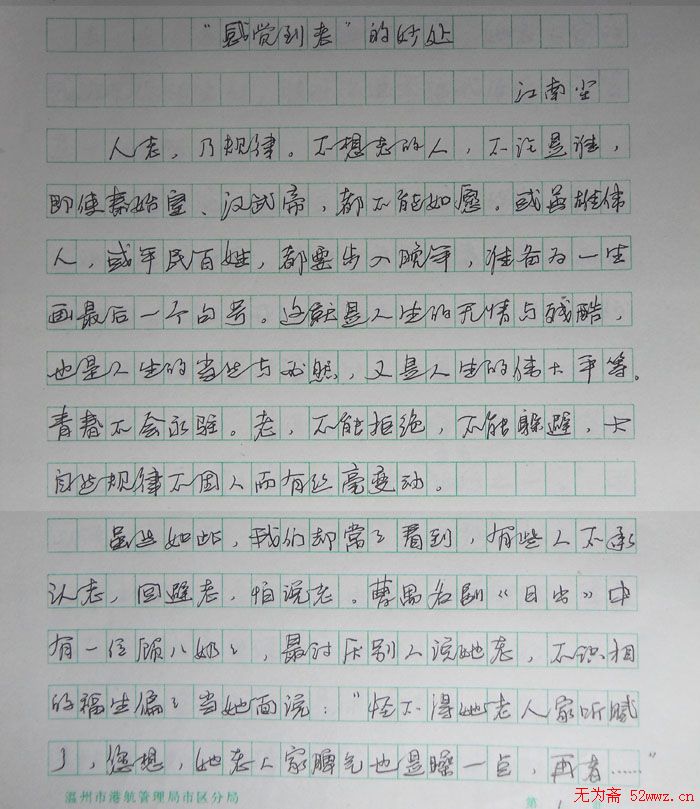 “感觉到老”的妙处
江南尘
人老，乃规律。不想老的人，不论是谁，
即使秦始皇、汉武帝，都不能如愿。或英雄伟
人，或平民百姓，都要步入晚年，准备为一生
画最后一个句号。这就是人生的无情与残酷，
也是人生的当然与必然，又是人生的伟大平等。
青春不会永驻。老，不能拒绝，不能躲避，大
自然规律不因人而有丝毫变动。
虽然如此，我们却常々看到，有些人不承
认老，回避老，怕说老。曹禺名剧《日出》中
有一位顾八奶々，最讨厌别人说她老，不识相
的福生偏々当她面说：“怪不得她老人家听腻
了，您想，她老人家脾气也是躁一点，再者……”
温州市港航管理局市区分局
第 1
无为斋 52wwz.cn